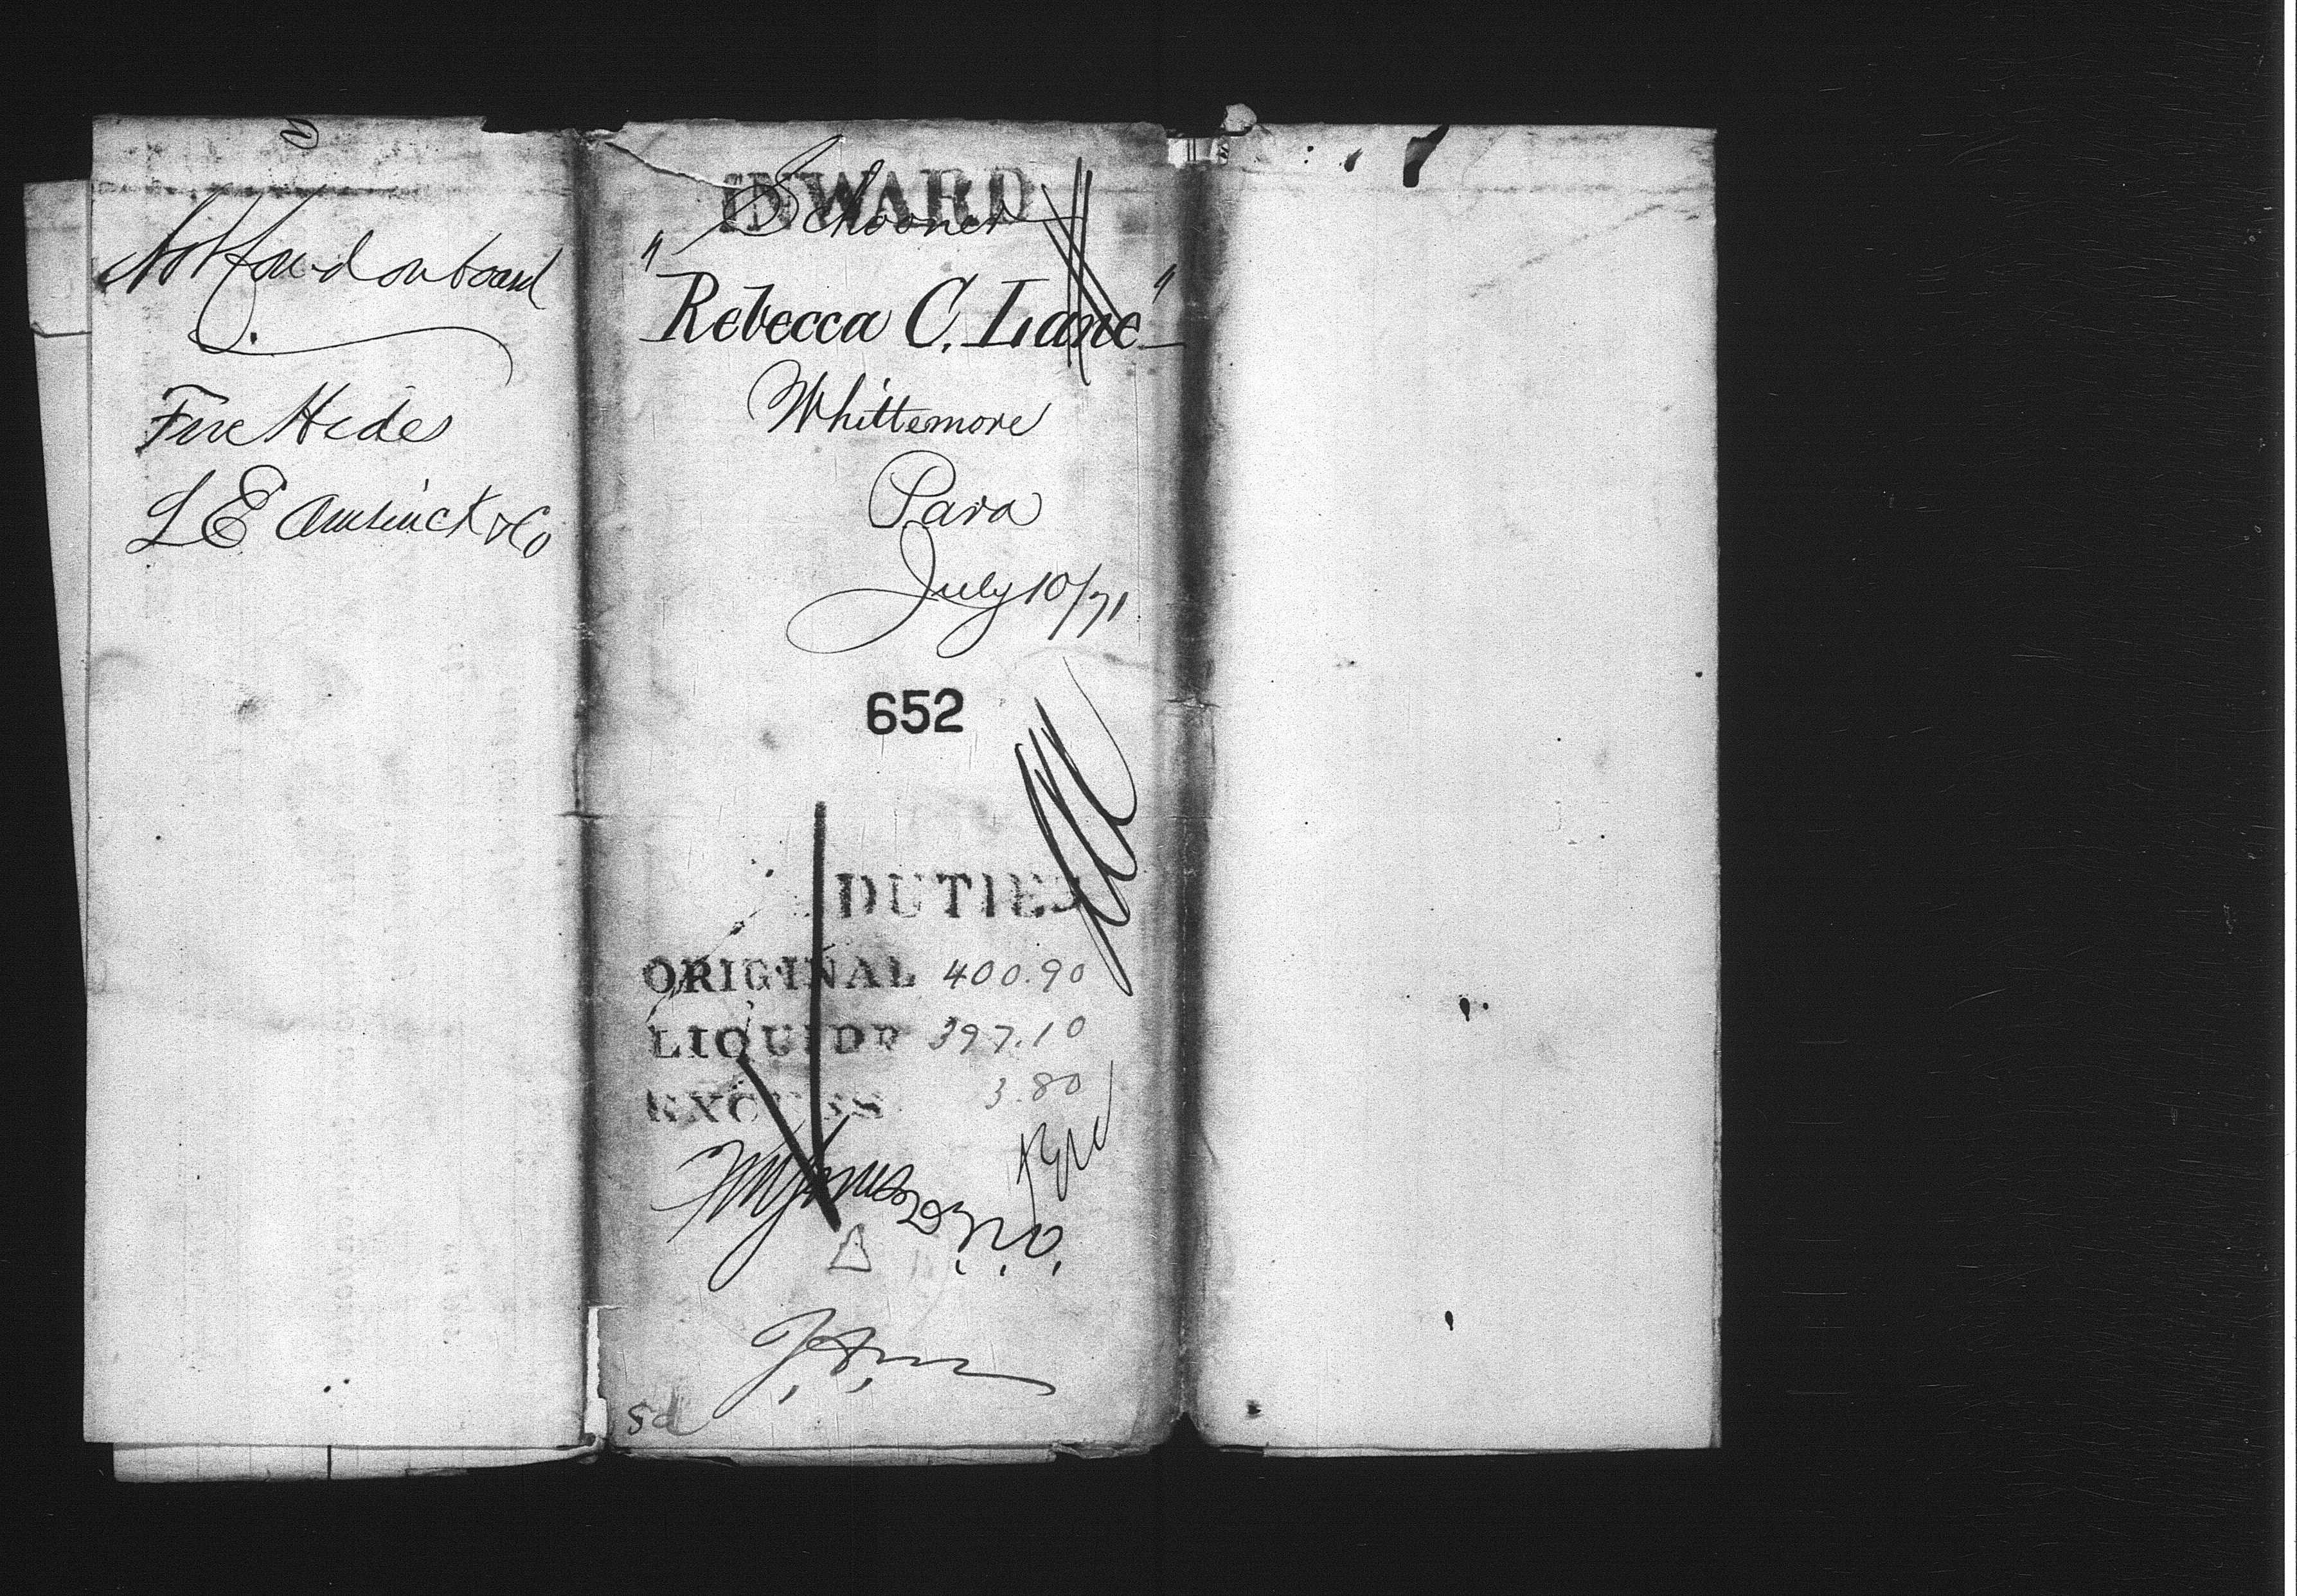 Not found on board
Five Hides
L E Amsinck & Co
INWARD
Schooner
"Rebecca C. Lane"
Whittemore
Para
July 10/71
652
DUTIES
ORIGINAL 400.90
LIQUIDD 397.10
EXCESS 3.80